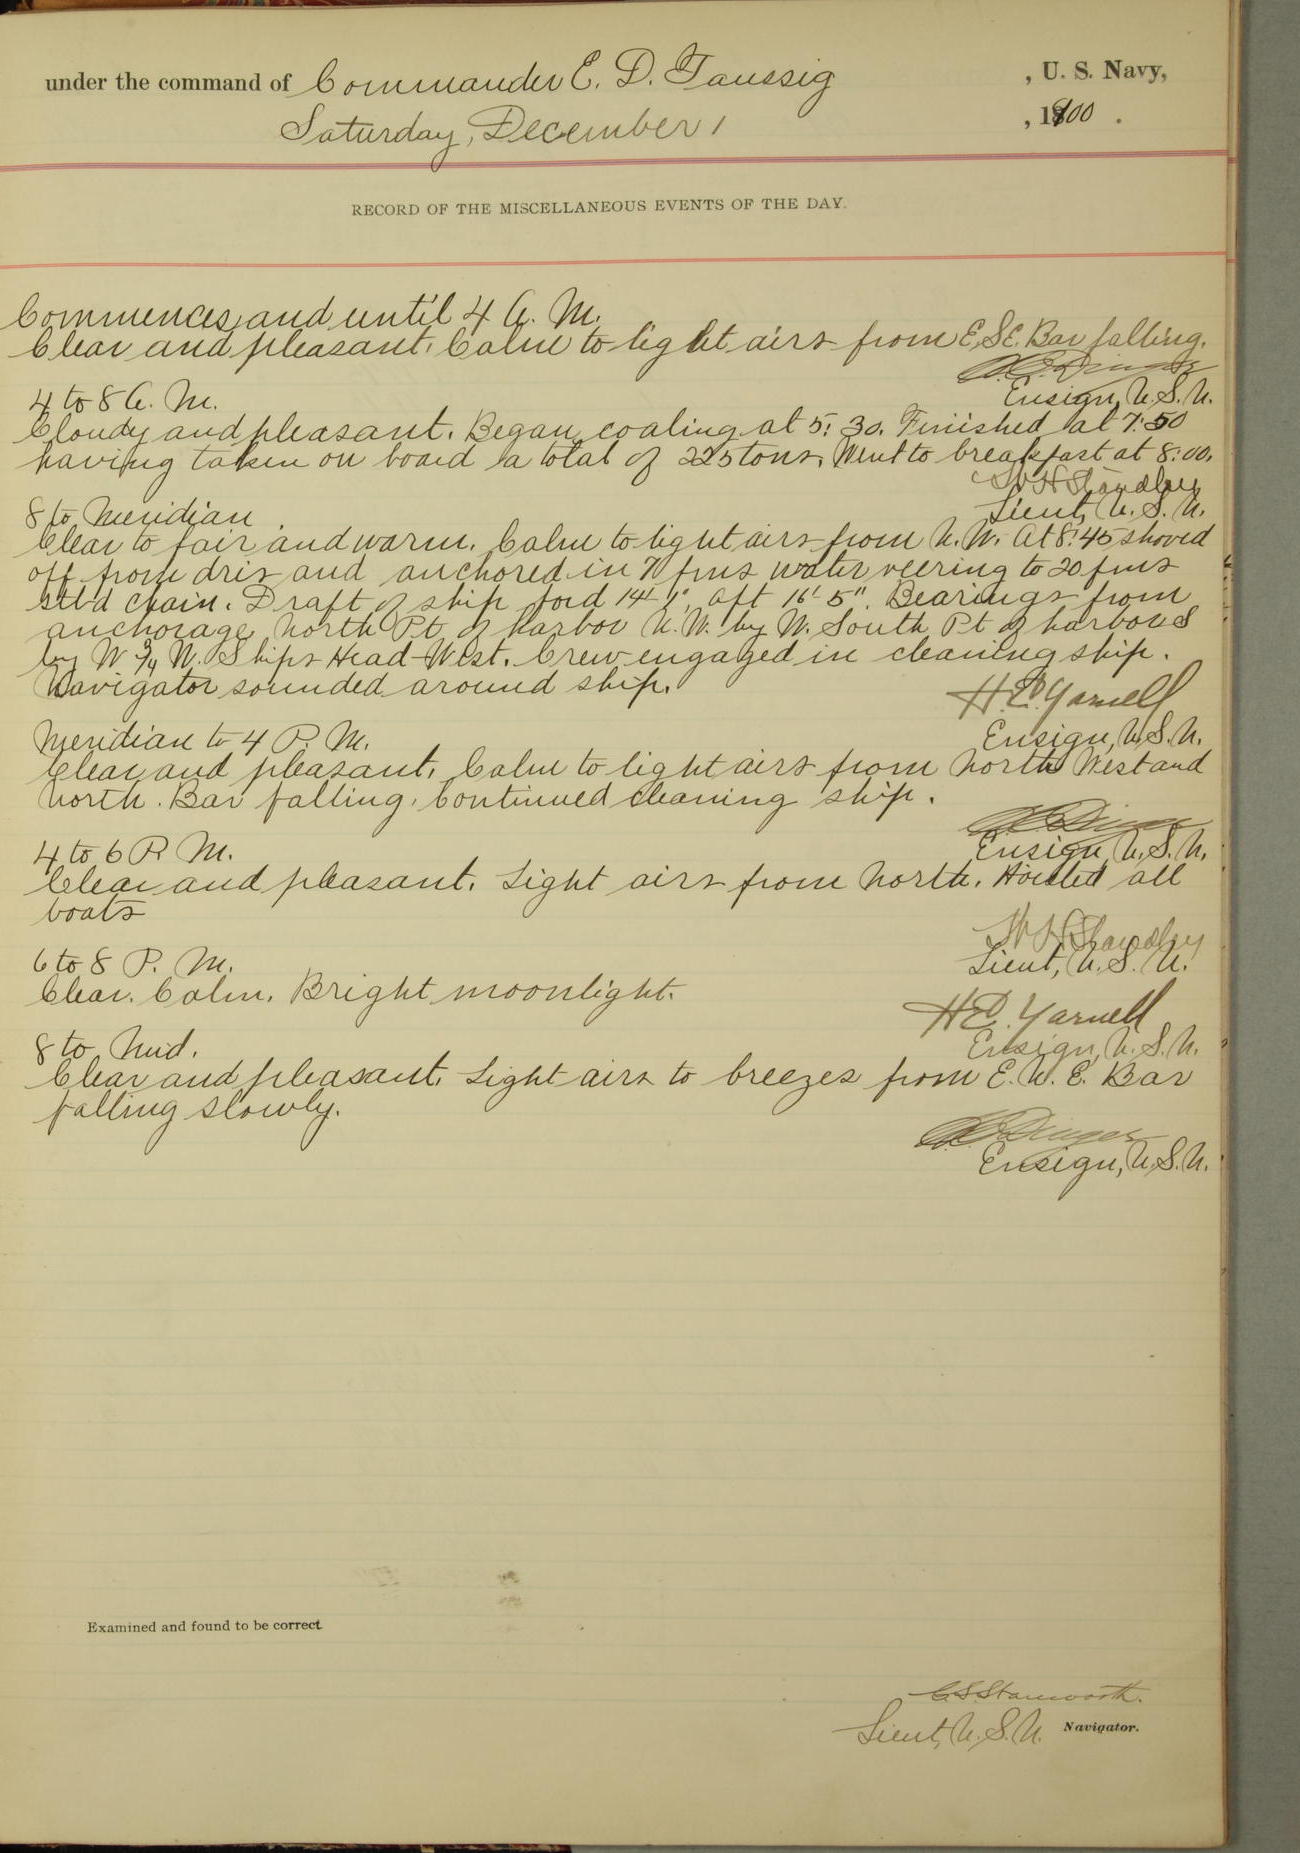 under the command of Commander E. D. Taussig , U. S. Navy,
Saturday, December 1 , 1900 .
RECORD OF THE MISCELLANEOUS EVENTS OF THE DAY.
Commences and until 4 A. M.
Clear and pleasant. Calm to light airs from E.S.E. Bar falling.
Ensign, U.S.N.
4 to 8 A. M.
Cloudy and pleasant. Began coaling at 5:30. Finished at 7:50
having taken on board a total of 225 tons. Went to breakfast at 8:00.
W H Standley
Lieut, U. S. N.
8 to Meridian.
Clear to fair and warm. Calm to light airs from N.W. At 8:45 shoved
off from and anchored in 7 fms water veering to 20 fms
stb'd chain. Draft of ship ford 14' 1", aft 16' 5". Bearings from
anchorage North Pt of harbor N.W. by W. South Pt of harbor S
by W 3/4 W. Ships Head West. Crew engaged in cleaning ship.
Navigator sounded around ship.
H.E. Yarnell
Ensign, U.S.N.
Meridian to 4 P. M.
Clear and pleasant. Calm to light airs from North West and
North. Bar falling. Continued cleaning ship.
Ensign, U.S.N.
4 to 6 P. M.
Clear and pleasant. Light airs from North. Hoisted all
boats
W H Standley
Lieut, U. S. N.
6 to 8 P. M.
Clear. Calm. Bright moonlight.
H E. Yarnell
Ensign, U.S.N.
8 to Mid.
Clear and pleasant. Light airs to breezes from E.N.E. Bar
falling slowly.
Ensign, U.S.N.
Examined and found to be correct
C.S. Stanworth.
Lieut, U.S.N. Navigator.